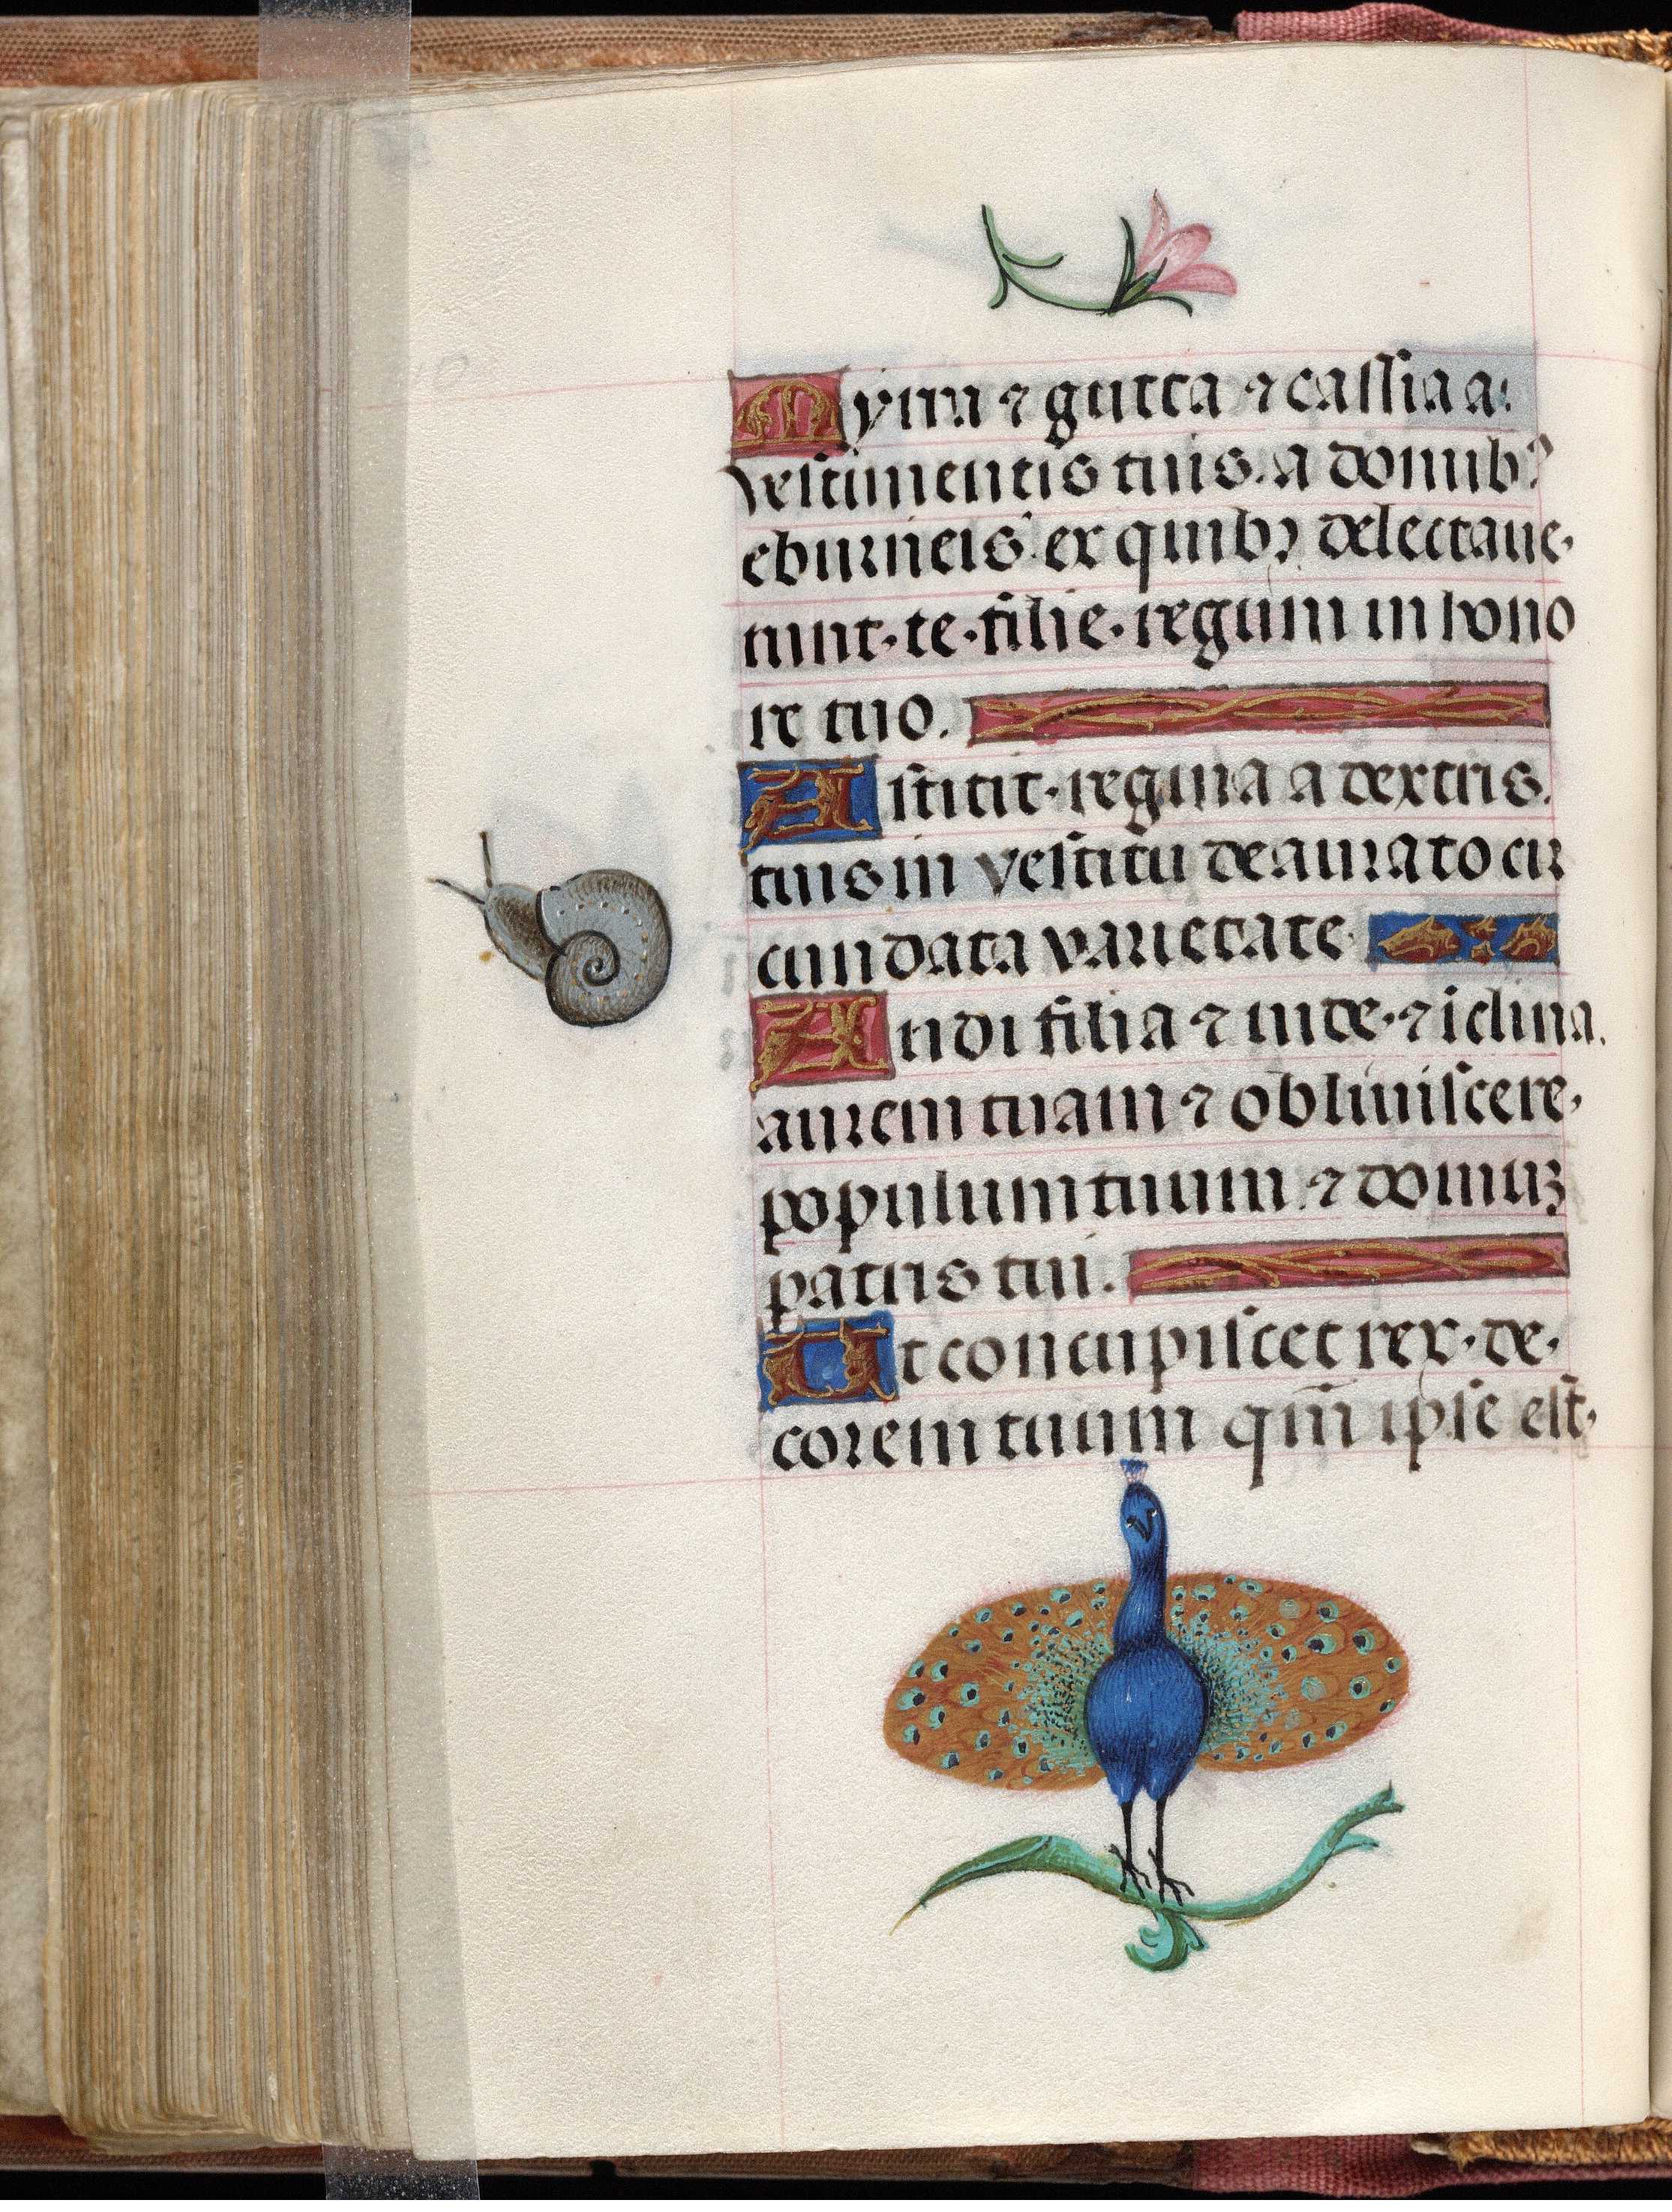 Myrra ⁊ gutta ⁊ cassia a:
vestimentis tuis. a domib᾽
eburneis: ex quibꝰ delectaue·
runt·te·filie·regum in hono
re tuo.
Astitit·regina a dextris.
tuis in vestitu deaurato cir
cundata varietate·
Audi filia ⁊ uide·⁊ īclina.
aurem tuam ⁊ obliuiscere·
populum tuum ⁊ domuꝫ
patris tui.
Et concupiscet rex·de·
corem tuum qm̄ ipse est·